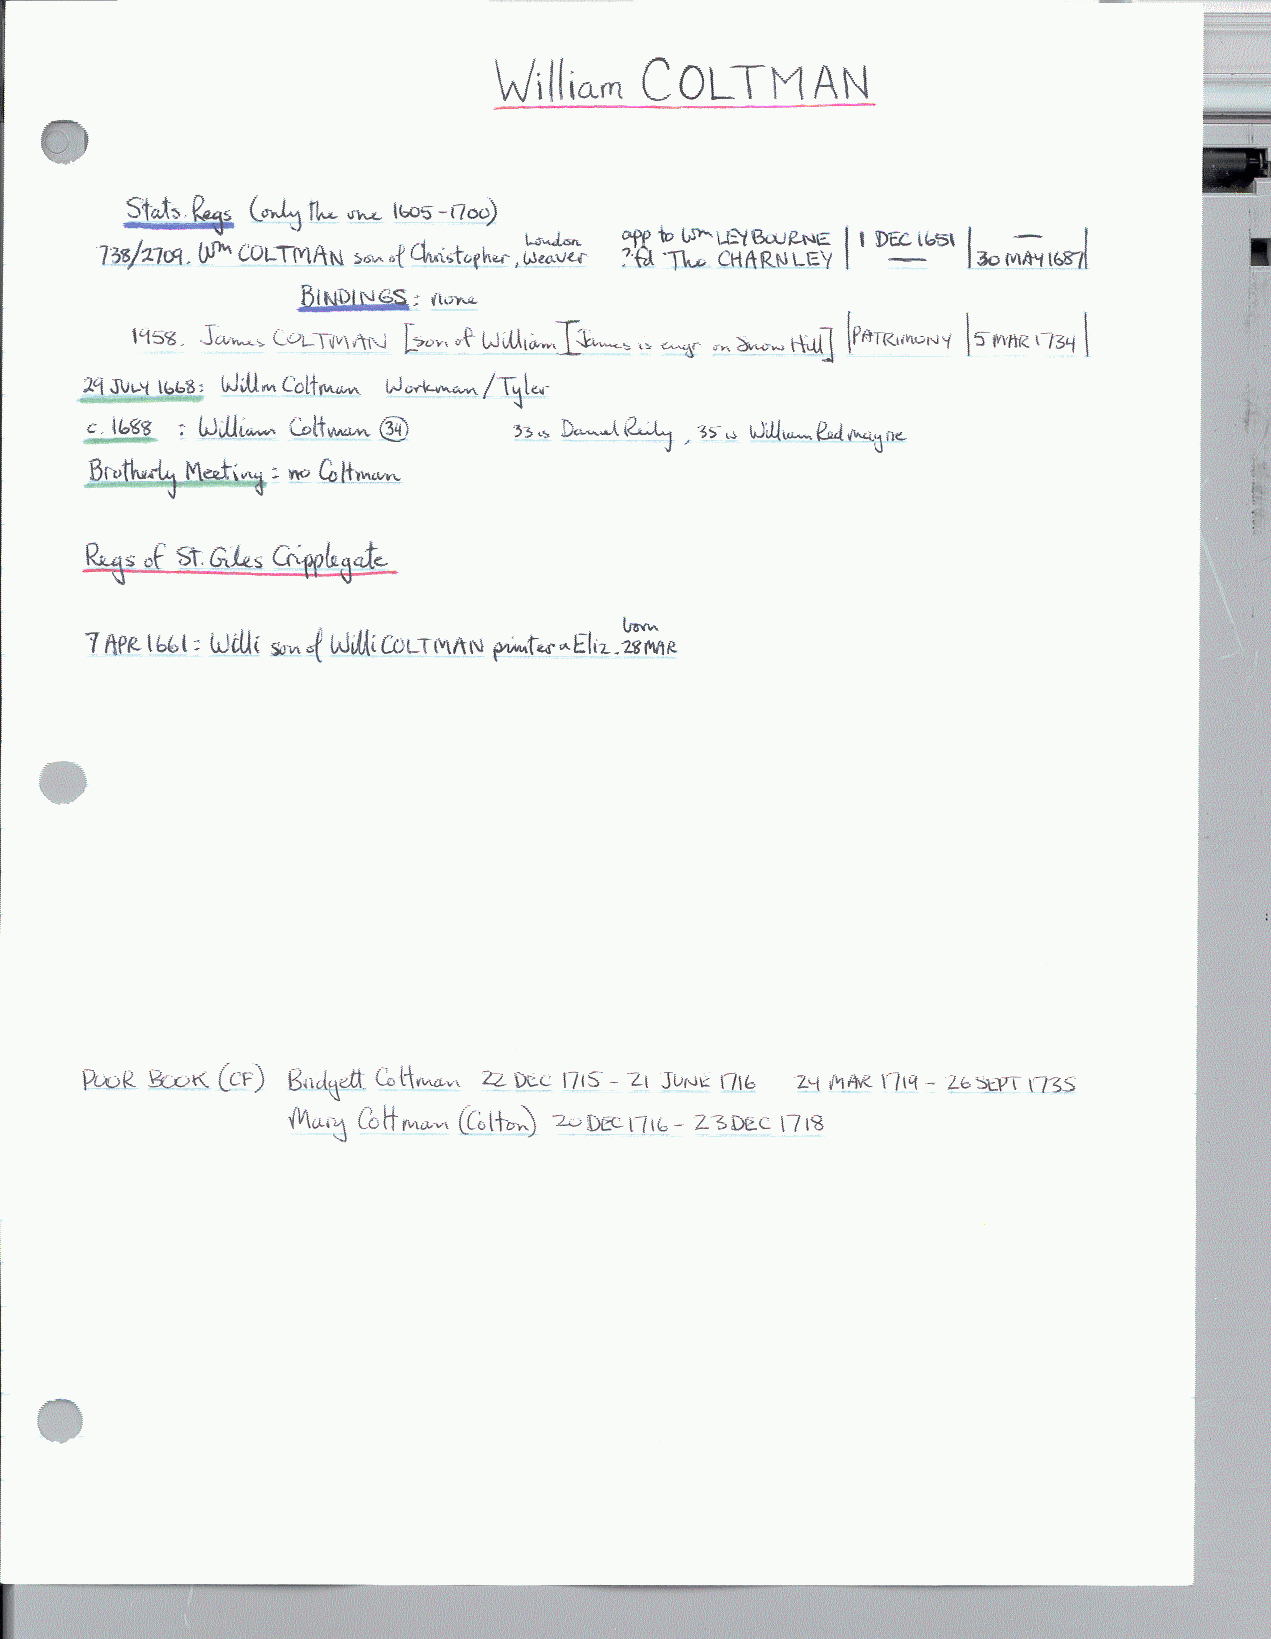 William COLTMAN
Stats. Regs (only the one 1605-1700)
738/2709. Wm COLTMAN son of Christopher, London Weaver app to Wm LEYBOURNE | 1 DEC 1651 | —
?fd Tho CHARNLEY | — | 30 MAY 1687 |
BINDINGS: none
1958. James COLTMAN [son of William [James is engr on Snow Hill] | PATRIMONY | 5 MAR 1734 |
29 JULY 1668: Willm Coltman Workman/Tyler
c. 1688 : William Coltman (34) 33 is Daniel Reily, 35 is William Redmayne
Brotherly Meeting: no Coltman
Regs of St. Giles Cripplegate
7 APR 1661: Willi son of Willi COLTMAN printer & Eliz. born 28 MAR
POOR BOOK (CF) Bridgett Coltman 22 DEC 1715 - 21 JUNE 1716 24 MAR 1719 - 26 SEPT 1735
Mary Coltman (Colton) 20 DEC 1716 - 23 DEC 1718